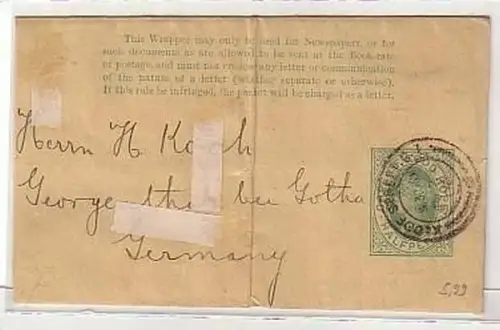 This Wrapper may only be used for Newspapers, or for
such documents as are allowed to be sent at the Book-rate
of postage, and must not enclose any letter or communication
of the nature of a letter (whether separate or otherwise).
If this rule be infringed, the packet will be charged as a letter.
Herrn H K ch
George thal bei Gotha
Germany
HALFPE
5,99